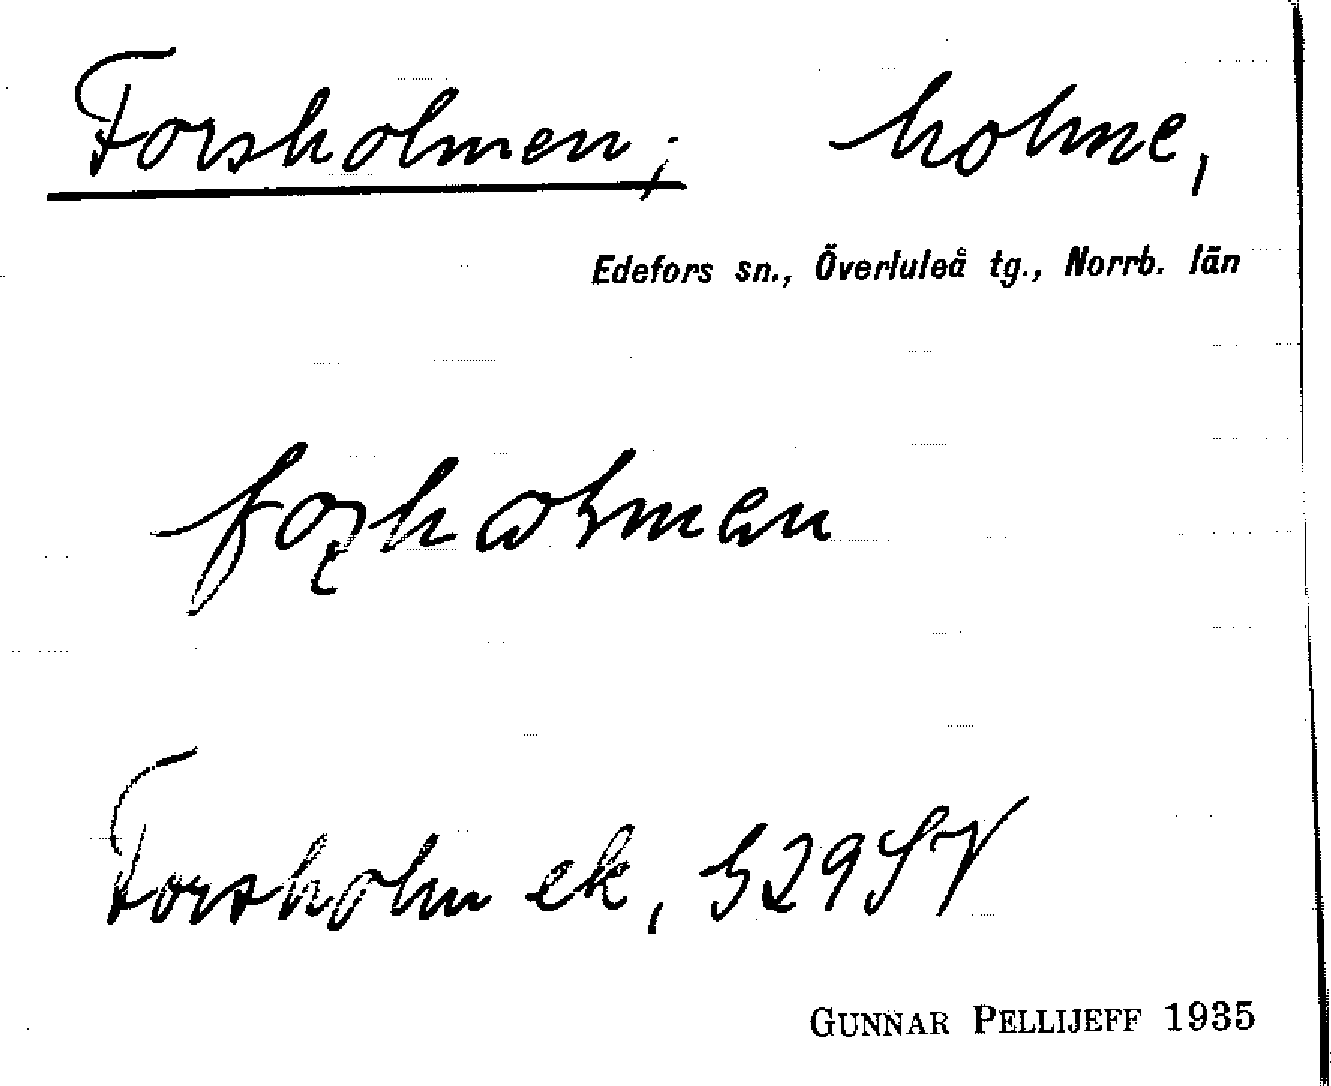 Forsholmen; holme,
Edefors sn., Överluleå tg., Norrb. län
Forsholm ek, 529SV
GUNNAR PELLIJEFF 1935